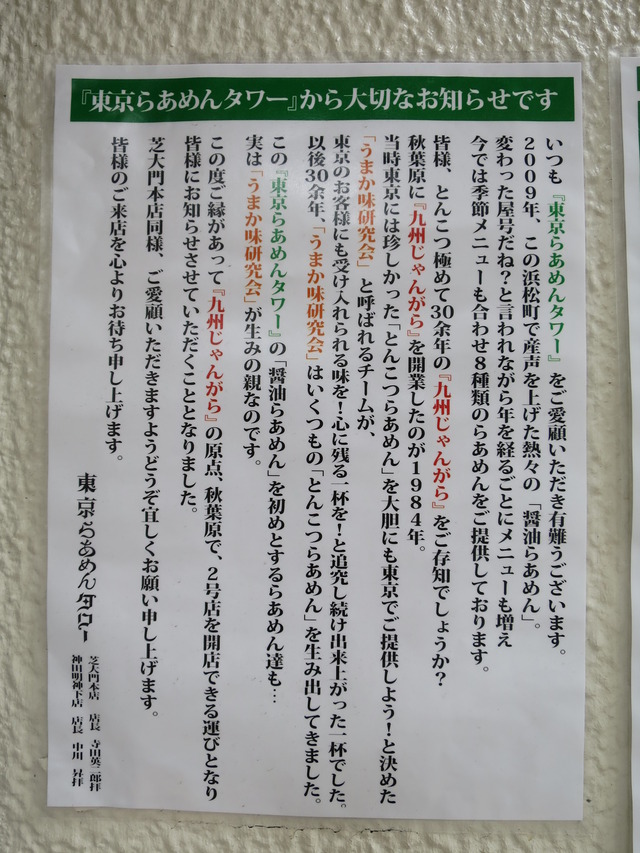 『東京らあめんタワー』から大切なお知らせです
いつも『東京らあめんタワー』をご愛顧いただき有難うございます。
2009年、この浜松町で産声を上げた熱々の「醤油らあめん」。
変わった屋号だね？と言われながら年を経るごとにメニューも増え
今では季節メニューも合わせ8種類のらあめんをご提供しております。
皆様、とんこつ極めて30余年の『九州じゃんがら』をご存知でしょうか？
秋葉原に『九州じゃんがら』を開業したのが1984年。
当時東京には珍しかった「とんこつらあめん」を大胆にも東京でご提供しよう！と決めた
「うまか味研究会」と呼ばれるチームが、
東京のお客様にも受け入れられる味を！心に残る一杯を！と追究し続け出来上がった一杯でした。
以後30余年、「うまか味研究会」はいくつもの「とんこつらあめん」を生み出してきました。
この『東京らあめんタワー』の「醤油らあめん」を初めとするらあめん達も…
実は「うまか味研究会」が生みの親なのです。
この度ご縁があって『九州じゃんがら』の原点、秋葉原で、2号店を開店できる運びとなり
皆様にお知らせさせていただくこととなりました。
芝大門本店同様、ご愛顧いただきますようどうぞ宜しくお願い申し上げます。
皆様のご来店を心よりお待ち申し上げます。
東京らあめんタワー
芝大門本店 店長 寺田英二郎拝
神田明神下店 店長 中川 昇拝